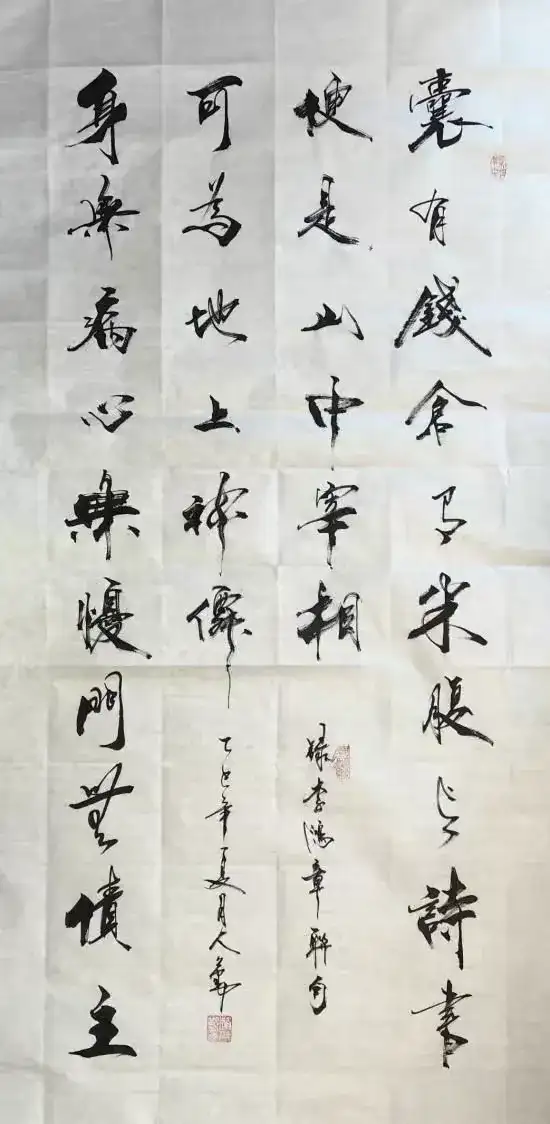 囊有錢倉有米腹有詩書
便是山中宰相
錄李鴻章聯句
身無病心無懮門無債主
可為地上神僊
乙巳年夏月人華